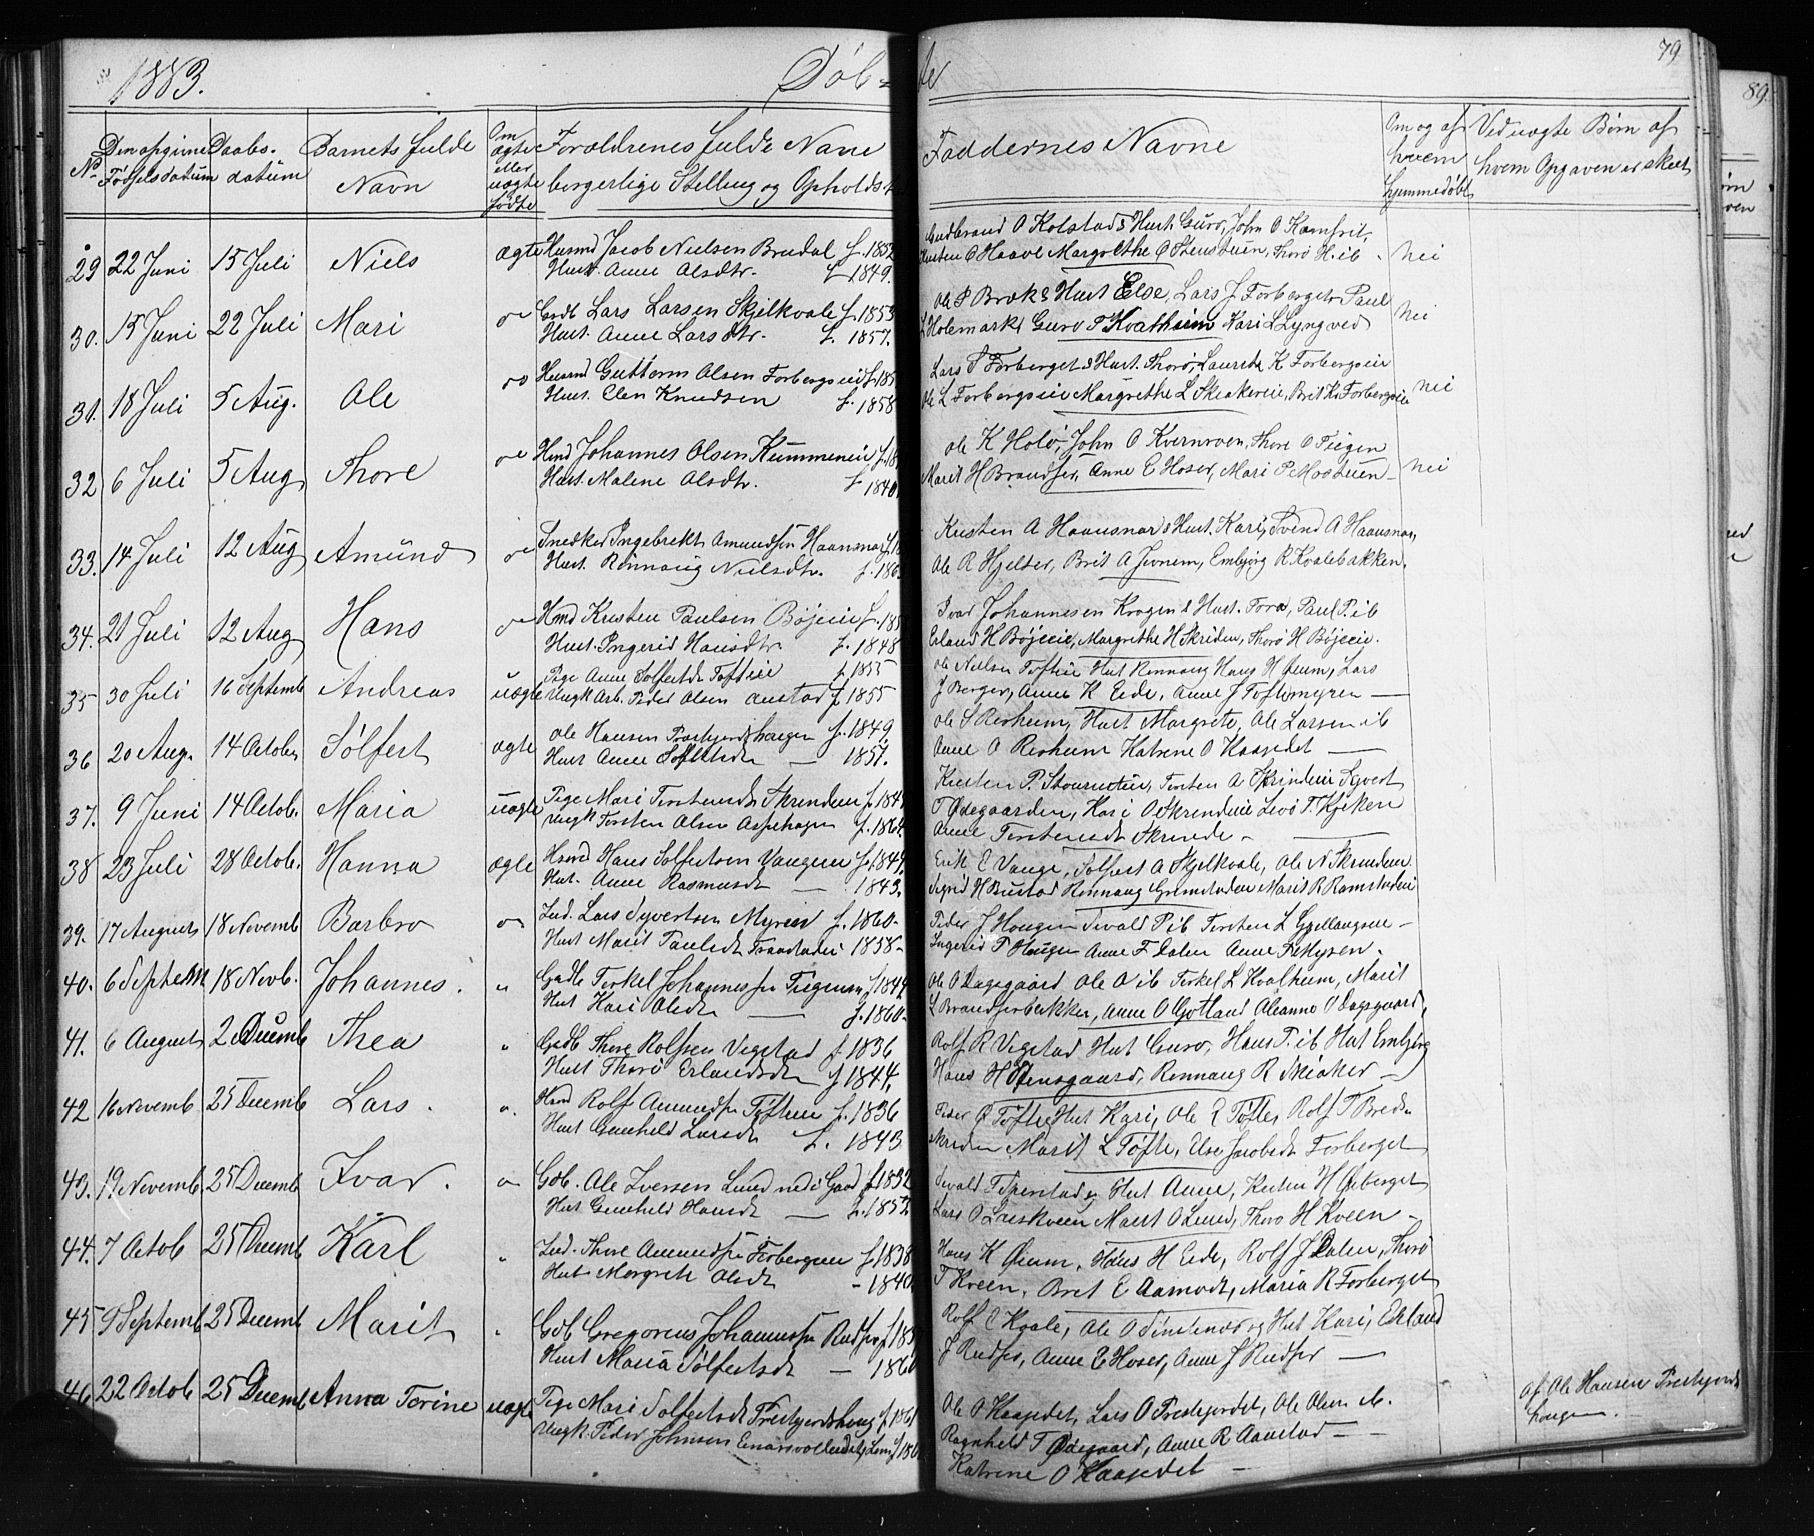 1883. Døb=
te 79
89
No Den opgivne Fødselsdatum Daabsdatum Barnets fulde Navn Om ægte eller uægte fødte Forældrenes fulde Navne borgerlige Stilling og Opholds-
Faddernes Navne Om og af hvem hjemmedøbt Ved uægte Børn af hvem Opgaven er skeet
29 22 Juni 15 Juli Niels ægte Husmd Jacob Nielsen Brudal f. 1852
Hust. Anne Olsdtr. f. 1849.
Gudbrand O Kolstad & Hust. Guro, John O Kamfrit,
O Haave Margrethe O Stenstuen, Thorø H. ib. nei
30. 15 Juni 22 Juli Mari Grdb Lars Larsen Skjelkvale f. 1853
Hust. Anne Larsdtr. f. 1857.
Ole P Bræk & Hust Else, Lars J Forberget Paul
Holemark Guro P Kvatheim Kari L Lyngved nei
31. 18 Juli 5 Aug. Ole Husmd Guttorm Olsen Forbergseie f. 185
Hust. Elen Knudsen f. 1858
Lars P Forberget & Hust. Thorø, Lauretz K Forbergseie
Ole L Forbergseie Margrethe L Skeakereie, Brit K Forbergseie nei
32 6 Juli 5 Aug Thore Hmd Johannes Olsen Kummeneie f. 18
Hust. Malene Olsdtr. f. 1840
Ole K Holø, John O Kvernroen, Thore O Tiegen
Marit H Brandser, Anne E Hoser, Mari P Mostuen nei
33. 14 Juli 12 Aug Amund Snedker Ingebrekt Amundsen Haansnar f. 18
Hust. Rønnaug Nielsdtr. f. 186
Kristen A Haansnar & Hust. Kari, Svend A Haansnar,
Ole R Hjelter, Brit A Jevnem, Embjørg R Kvalebakken.
34. 21 Juli 12 Aug Hans Hmd Kristen Paulsen Bøjeeie f. 185
Hust. Ingerid Hansdtr. f. 1848
Ivar Johannesen Krogen & Hust. Tora, Paul P. ib
Erland H Bøjeeie, Margrethe H Skriden, Thorø H Bøjeeie.
35 30 Juli 16 Septemb Andreas uægte Pige Anne Sølfestdt Tofteie f. 1855
Ungk Arb. Peder Olsen Austad f. 1855
Ole Nielsen Tofteie Hust Rønnaug Hans H Øeum, Lars
J Berger, Anne K Eide, Anne J Toftemyren
36 20 Aug. 14 October Sølfest ægte Ole Hansen Prestjordshaugen f. 1849.
Hust Anne Sølfestdt 1857.
Ole S Risheim, Hust Margrete, Ole Larsen ib
Anne O Risheim Katrine O Haagedet
37. 9 Juni 14 Octob. Maria uægte Pige Mari Torstensdt Skrindeeie f. 184
Ungk Torsten Olsen Aspehagen f. 1864
Kristen P. Stouenstuen, Torsten A Skrindeie Syvert
T Ødegaarden, Kari O Skrindeie Livø T. Kjøken
Anne Torstensdt Skrinde
38 23 Juli 28 Octob. Hanna ægte Hsmd Hans Sølfestsen Vangeeie f. 1841
Hust. Anne Rasmusdt 1843.
Erik E Vange, Sølfest A Skjelkvale, Ole N Skrindeie
Sigrid H Bustad Rønnaug Grimstaden Marit R Ramstadeie
39. 17 August 18 Novemb Barbro Ind. Lars Syvertsen Myren f. 1860
Hust Marit Paulsdt 1858
Peder J Hougen Sevald P ib Torsten L Gjellaugseie
Ingerid P Hougen Anne F Dalen Anne P Myren.
40. 6 Septem 18 Novb. Johannes. Grdb Torkel Johannessen Tiegum f. 1844
Hust Kari Olsdt f. 1860
Ole O Dagsgaard Ole O ib Torkel L Kvalheim, Marit
L Brandserbakken, Anne O Gotland Oleanna O Dagsgaard
41. 6 August 2 Decemb Thea Grdb Thore Rolfsen Vigstad f 1836
Hust Thorø Erlandsdt f 1844.
Rolf R Vigstad Hust Guro, Hans T. ib Hust Embjørg
Hans H Stensgaard, Rønnaug R Skiaker
42 16 Novemb 25 Decemb Lars. Hmd Rolf Amundsen Tøfteie f. 1836
Hust Gunhild Larsdt f. 1843
Peder O Tøfte Hust Kari, Ole E Tøfte, Rolf P Brede-
skriden Marit L Tøfte, Else Jacobsdt Forberget
43. 19 Novemb. 25 Decemb Ivar. Gdb. Ole Iversen Lund nedi Gaard f 1832
Hust Gunhild Hansdt f. 1852
Sevald T Sperstad og Hust Anne, Kristen H Øiberget
Lars O Grøskveen Marit O Lund, Thorø H Kveen
44. 7 Octob 25 Decemb Karl Ind. Thore Amundsen Forbergeie f. 1838
Hust Margrete Olsdt 1840
Hans K Øeum, Hans H Eide, Rolf J Dalen, Thorø
T Kveen, Brit E Aamodt, Maria R Forberget
45 9 Septemb 25 Decemb Marit Gdb Gregorius Johannessen Rudser f. 185
Hust Maria Sølfestsdt 1860
Rolf E Kvale, Ole O Tinstenar og Hust Kari, Erland
J Rudser, Anne E Hoser, Anne J Rudser
46 22 Octob 25 Decemb Anna Torine uægte Pige Mari Sølfestsdt Prestjordshaug f 1861
Ungk. Peder Johnsen Einarsvolleødet, Lom f 186
Ole O Haagedet, Lars O Prestejordet, Ole Olsen ib.
Ragnhild T Ødegaard, Anne R Aanstad
Katrine O Haagedet
af Ole Hansen Prestjords
hougen